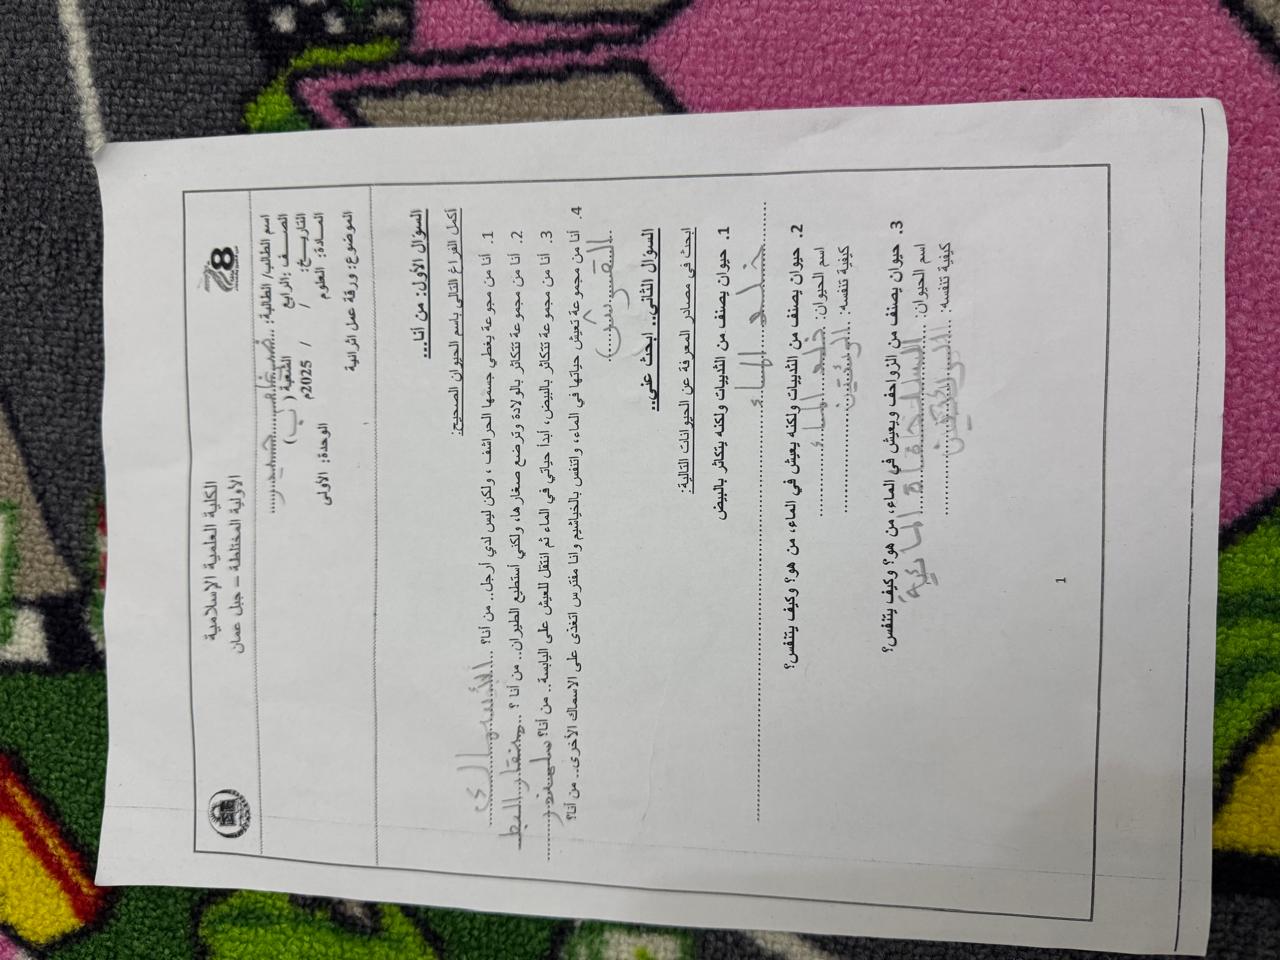 الكلية العلمية الإسلامية
الأولية المختلطة – جبل عمان
8
اسم الطالب/ الطالبة:
الصـــف :الرابع الشعبة ( ب )
التاريـــخ: / / 2025م
المــادة: العلوم الوحدة: الأولى
الموضوع: ورقة عمل اثرائية
السؤال الأول: من أنا...
أكمل الفراغ التالي باسم الحيوان الصحيح:
1. أنا من مجموعة يغطي جسمها الحراشف ، ولكن ليس لدي أرجل.. من أنا؟ الأسماك
2. أنا من مجموعة تتكاثر بالولادة وترضع صغارها، ولكني أستطيع الطيران.. من أنا ؟ منقار البط
3. أنا من مجموعة تتكاثر بالبيض، أبدأ حياتي في الماء ثم انتقل للعيش على اليابسة.. من أنا؟
4. أنا من مجموعة تعيش حياتها في الماء، واتنفس بالخياشيم وانا مفترس اتغذى على الاسماك الأخرى.. من أنا؟
(القرش)
السؤال الثاني.. ابحث عني..
ابحث في مصادر المعرفة عن الحيوانات التالية:
1. حيوان يصنف من الثدييات ولكنه يتكاثر بالبيض
خلد الماء
2. حيوان يصنف من الثدييات ولكنه يعيش في الماء، من هو؟ وكيف يتنفس؟
اسم الحيوان: خلد الماء
كيفية تنفسه: الرئتين
3. حيوان يصنف من الزواحف ويعيش في الماء، من هو؟ وكيف يتنفس؟
اسم الحيوان: السلحفاة المائية
كيفية تنفسه: الرئتين
1